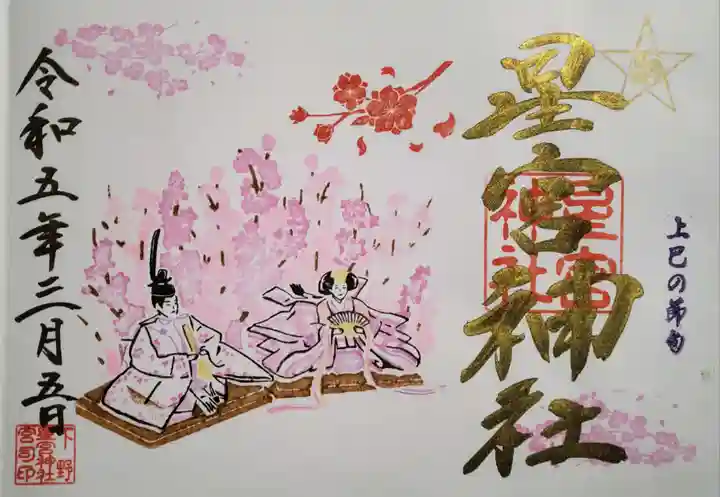 上巳の節句
星宮神社
星宮
神社
令和五年三月五日
下野
星宮神社
宮司印